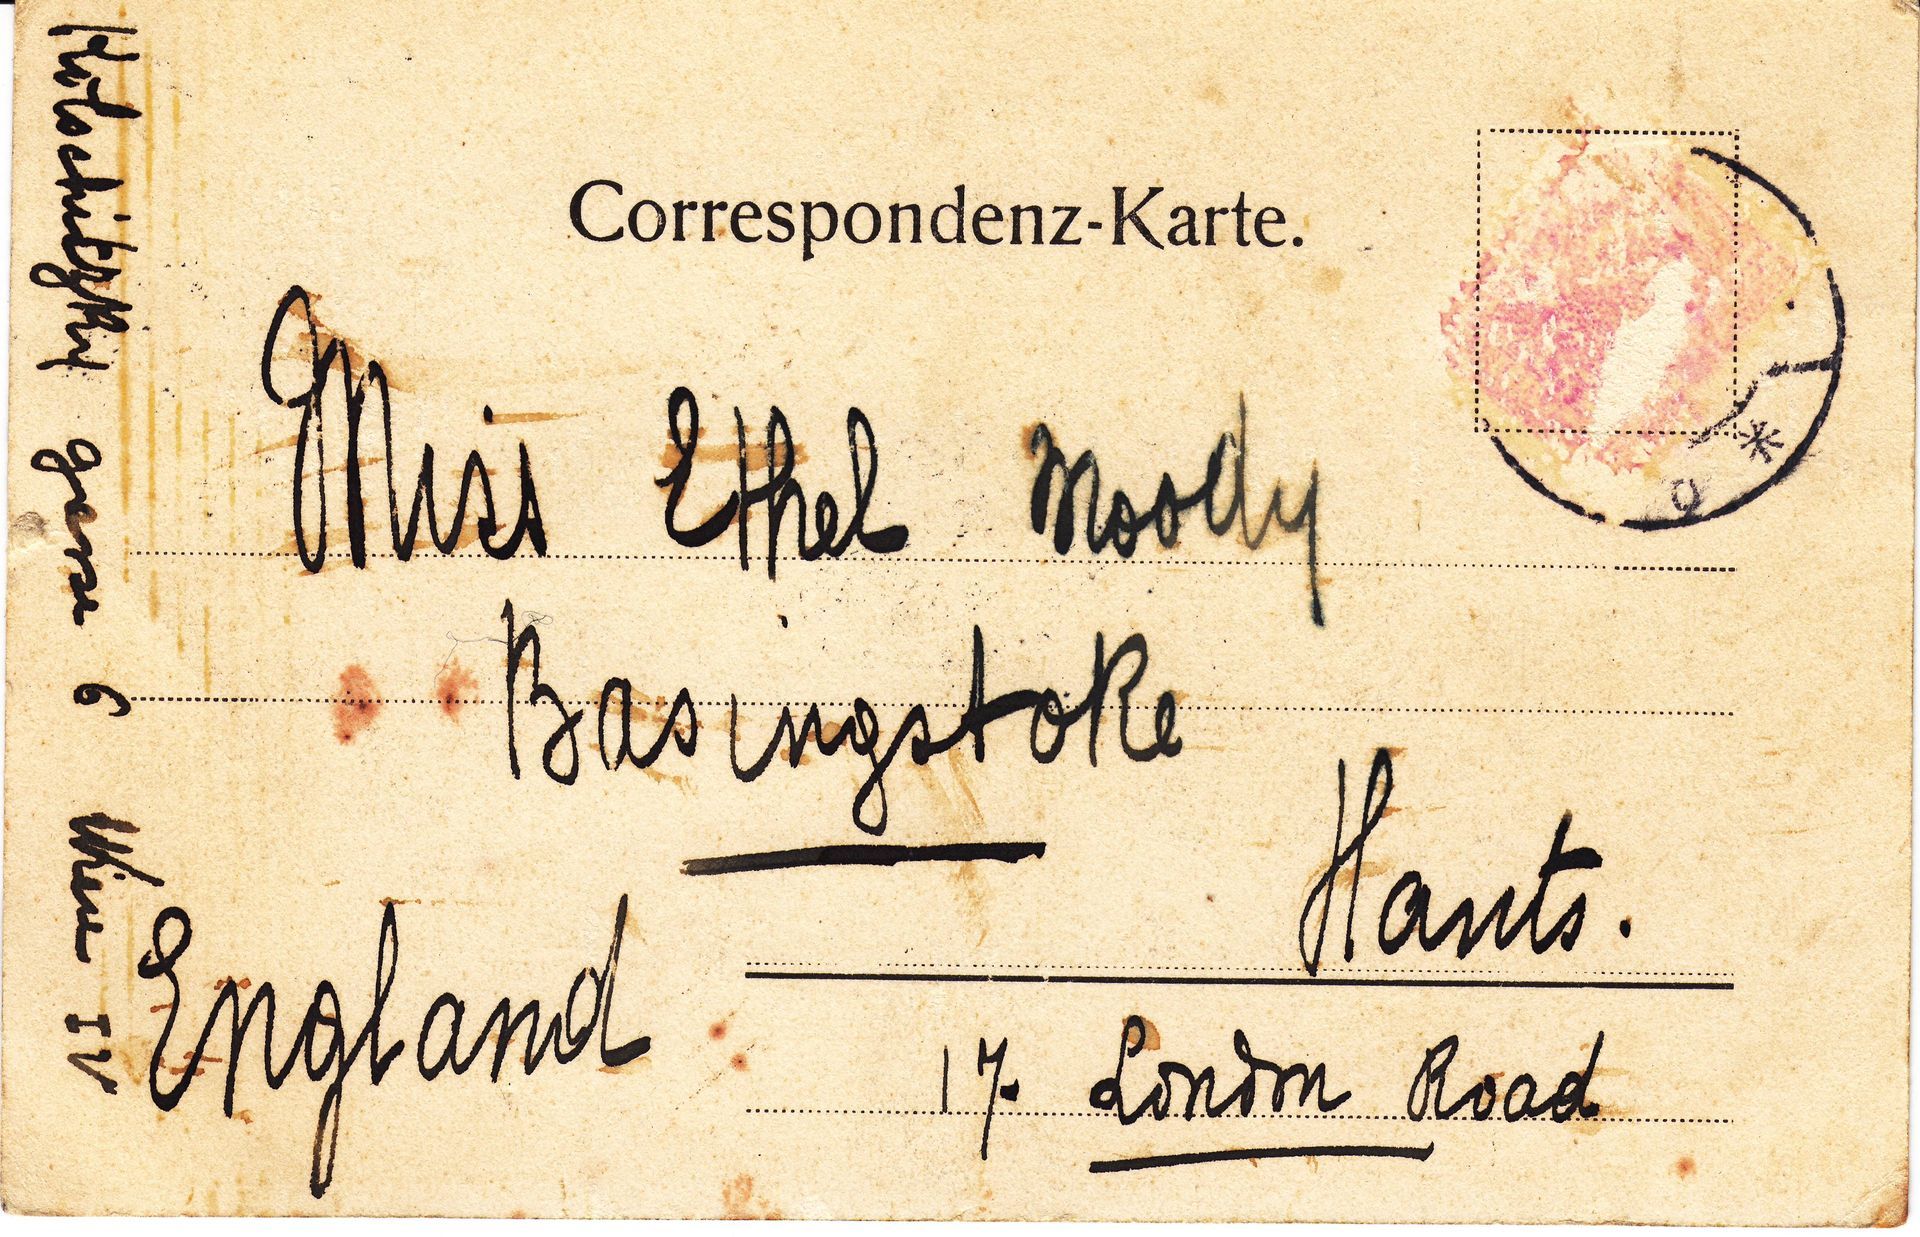 Correspondenz-Karte.
Miss Ethel Moody
Basingstoke
Hants.
England
17. London Road
Kolschitzky gasse 6 Wien IV